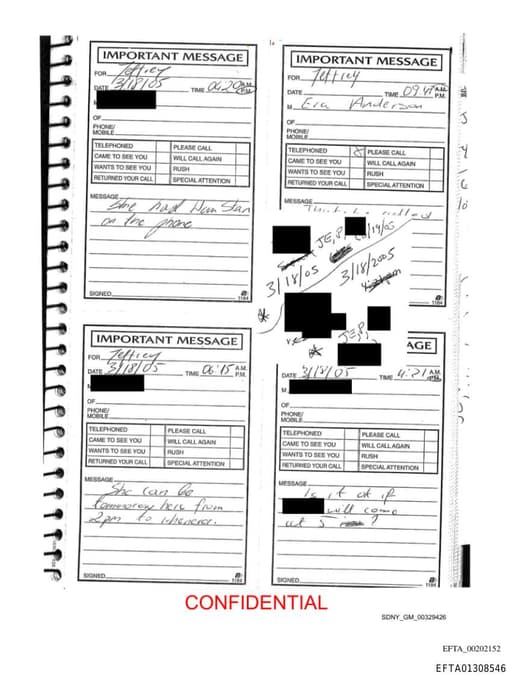 IMPORTANT MESSAGE
FOR Jeffrey
DATE 3/18/05 TIME 06:20 A.M. P.M.
M
OF
PHONE/
MOBILE
TELEPHONED PLEASE CALL
CAME TO SEE YOU WILL CALL AGAIN
WANTS TO SEE YOU RUSH
RETURNED YOUR CALL SPECIAL ATTENTION
MESSAGE
She had
on the phone
SIGNED
1184
IMPORTANT MESSAGE
FOR Jeffrey
DATE TIME 09:47 A.M. P.M.
M Eva Anderson
OF
PHONE/
MOBILE
TELEPHONED X PLEASE CALL
CAME TO SEE YOU WILL CALL AGAIN
WANTS TO SEE YOU RUSH
RETURNED YOUR CALL SPECIAL ATTENTION
MESSAGE
called
JE,P
3/18/05
3/18/2005
1184
JE,P
IMPORTANT MESSAGE
FOR Jeffrey
DATE 3/18/05 TIME 06:15 A.M. P.M.
M
OF
PHONE/
MOBILE
TELEPHONED PLEASE CALL
CAME TO SEE YOU WILL CALL AGAIN
WANTS TO SEE YOU RUSH
RETURNED YOUR CALL SPECIAL ATTENTION
MESSAGE
She can be
tommorow here from
2pm to whenever.
SIGNED
1184
AGE
DATE 3/18/05 TIME 4:21 A.M. P.M.
M
OF
PHONE/
MOBILE
TELEPHONED PLEASE CALL
CAME TO SEE YOU WILL CALL AGAIN
WANTS TO SEE YOU RUSH
RETURNED YOUR CALL SPECIAL ATTENTION
MESSAGE
Is it ok if
will come
at 5 ?
SIGNED
1184
CONFIDENTIAL
SDNY_GM_00329426
EFTA_00202152
EFTA01308546